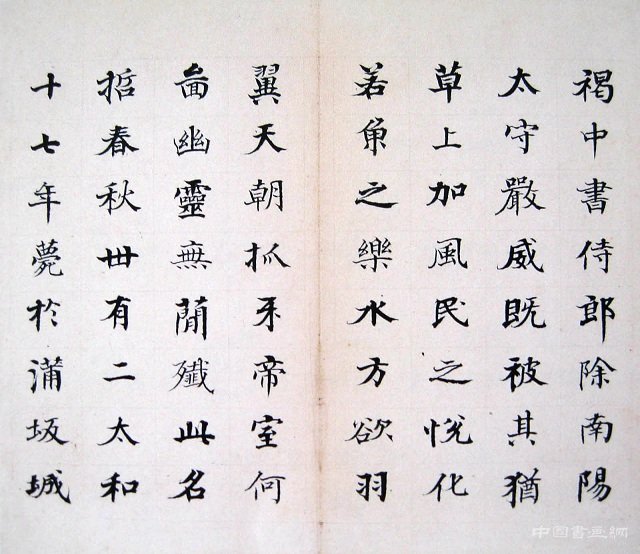 褐中書侍郎除南陽
太守嚴威既被其猶
草上加風民之悅化
若魚之樂水方欲羽
翼天朝抓牙帝室何
啚幽靈無蕑殲此名
哲春秋卅有二太和
十七年薨於蒲坂城
中国書画網